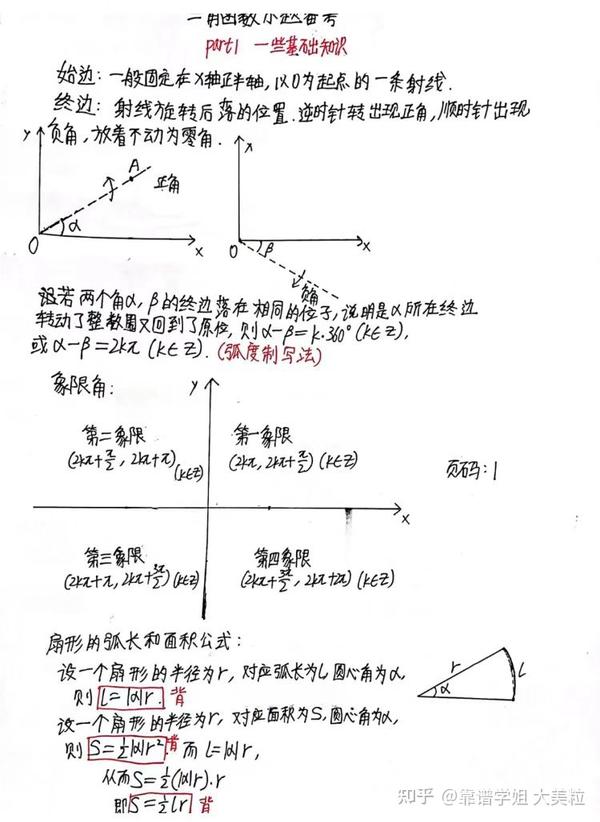 三角函数小题备考
part1 一些基础知识
始边：一般固定在X轴正半轴，以O为起点的一条射线.
终边：射线旋转后落的位置.逆时针转出现正角,顺时针出现
负角，放着不动为零角.
y
A
正角
α
O
x
x
O
β
x
负角
设若两个角α，β的终边落在相同的位子，说明是α所在终边
转动了整数圈又回到了原位，则α-β=k·360°(k∈Z)，
或α-β=2kπ(k∈Z). (弧度制写法)
象限角：
y
第二象限
(2kπ+π/2, 2kπ+π) (k∈Z)
第一象限
(2kπ, 2kπ+π/2) (k∈Z)
页码：1
x
第三象限
(2kπ+π, 2kπ+3π/2) (k∈Z)
第四象限
(2kπ+3π/2, 2kπ+2π) (k∈Z)
扇形的弧长和面积公式：
设一个扇形的半径为r，对应弧长为l，圆心角为α，
则 l=|α|r. 背
r
l
α
设一个扇形的半径为r，对应面积为S，圆心角为α，
则 S=½|α|r². 背 而 l=|α|r，
从而S=½(|α|r)·r
即 S=½lr 背
知乎 @靠谱学姐 大美粒